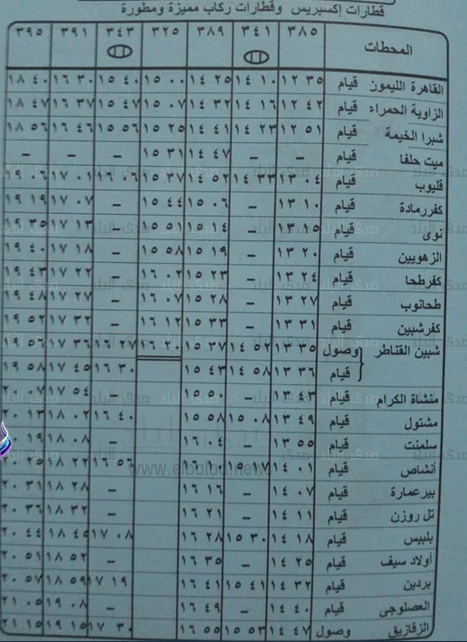 قطارات إكسبريس وقطارات ركاب مميزة ومطورة
المحطات ٣٨٥ ٣٤١ ٣٨٩ ٣٢٥ ٣٤٣ ٣٩١ ٣٩٥
القاهرة الليمون قيام ١٢ ٣٥ ١٤ ١٠ ١٤ ٢٥ ١٥ ٠٠ ١٥ ٤٠ ١٦ ٣٠ ١٨ ٤٠
الزاوية الحمراء قيام ١٢ ٤٢ ١٤ ١٦ ١٤ ٣٢ ١٥ ٠٧ ١٥ ٤٧ ١٦ ٣٧ ١٨ ٤٧
شبرا الخيمة قيام ١٢ ٥١ ١٤ ٢٣ ١٤ ٤١ ١٥ ٢٥ ١٥ ٥٦ ١٦ ٤٦ ١٨ ٥٦
ميت حلفا قيام – – ١٤ ٤٧ ١٥ ٣١ – – –
قليوب قيام ١٣ ٠٤ ١٤ ٣٣ ١٤ ٥٢ ١٥ ٣٧ ١٦ ٠٦ ١٧ ٠١ ١٩ ٠٦
كفررمادة قيام ١٣ ١٠ – ١٥ ٠٦ ١٥ ٤٤ – ١٧ ٠٧ ١٩ ١٩
نوى قيام ١٣ ١٥ – ١٥ ١٤ ١٥ ٥١ – ١٧ ١٣ ١٩ ٣٥
الزهويين قيام ١٣ ٢٠ – ١٥ ١٩ ١٥ ٥٨ – ١٧ ١٨ ١٩ ٤٠
كفرطحا قيام ١٣ ٢٤ – ١٥ ٢٣ ١٦ ٠٢ – ١٧ ٢٢ ١٩ ٤٣
طحانوب قيام ١٣ ٢٧ – ١٥ ٢٨ ١٦ ٠٧ – ١٧ ٢٧ ١٩ ٤٨
كفرشبين قيام ١٣ ٣١ – ١٥ ٣٣ ١٦ ١٢ – ١٧ ٣٢ ١٩ ٥٢
شبين القناطر وصول ١٣ ٣٥ ١٤ ٥٢ ١٥ ٣٧ ١٦ ٢٠ ١٦ ٢٧ ١٧ ٣٦ ١٩ ٥٦
قيام ١٣ ٣٦ ١٤ ٥٨ ١٥ ٤٣ ١٦ ٣٠ ١٧ ٤٥ ١٩ ٥٨
منشاة الكرام قيام ١٣ ٤٣ – ١٥ ٥٠ – ١٧ ٥٤ ٢٠ ٠٧
مشتول قيام ١٣ ٤٩ ١٥ ٠٨ ١٥ ٥٨ ١٦ ٤٠ ١٨ ٠٢ ٢٠ ١٣
سلمنت قيام ١٣ ٥٥ – ١٦ ٠٤ – ١٨ ٠٨ ١٩
أنشاص قيام ١٤ ٠١ ١٦ ٥٦ ١٨ ٢٢ ٢٠ ٢٥
بيرعمارة قيام ١٤ ٠٧ – ١٦ ١٦ – ١٨ ٢٨ ٢٠ ٣١
تل روزن قيام ١٤ ١١ – ١٦ ٢١ – ١٨ ٣٢ ٢٠ ٣٦
بلبيس قيام ١٤ ١٨ ١٥ ٣٠ ١٦ ٢٨ ١٧ ٠٨ ١٨ ٤٥ ٢٠ ٤٤
أولاد سيف قيام ١٤ ٢٥ – ١٦ ٣٥ – ١٨ ٥٢ ٢٠ ٥١
بردين قيام ١٤ ٣٢ ١٥ ٤١ ١٦ ٤١ ١٧ ١٩ ١٨ ٥٩ ٢٠ ٥٧
العصلوجى قيام ١٤ ٤٠ – ١٦ ٤٩ – ١٩ ٠٨ ٢١ ٠٥
الزقازيق وصول ١٤ ٤٧ ١٥ ٥٣ ١٦ ٥٥ ١٧ ٣٠ ١٩ ١٥ ٢١ ١٥